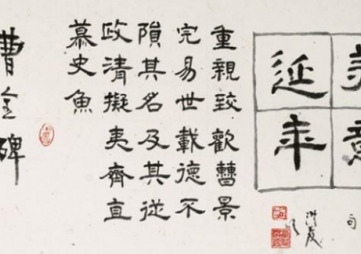 延年
重親致歡曹景
完易世載德不
隕其名及其從
政清擬夷齊直
慕史魚
曹全碑